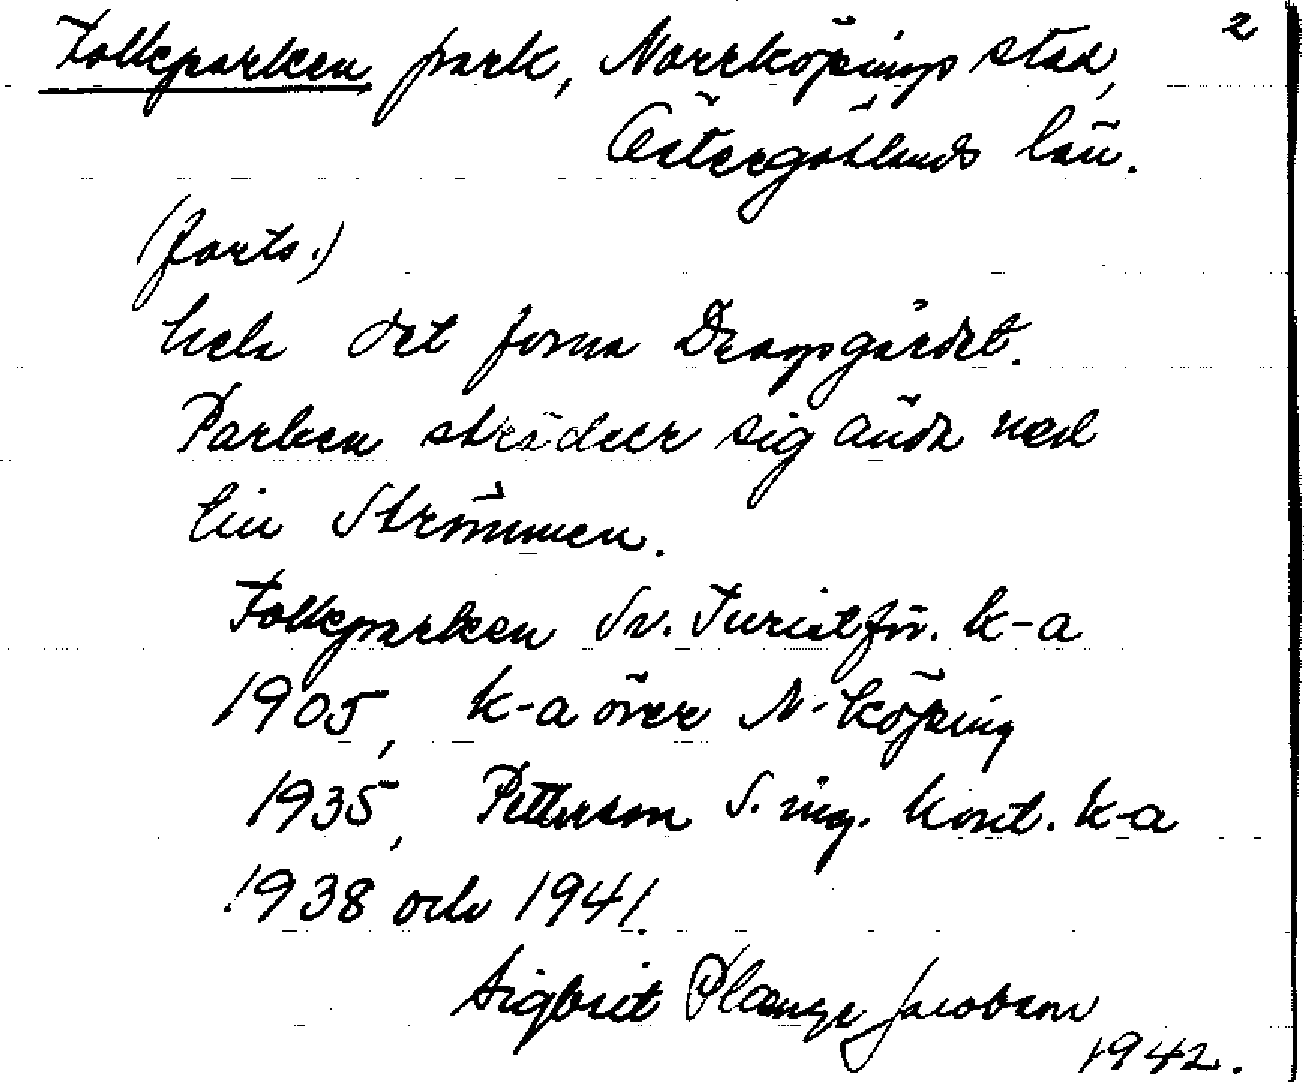 2
Folkparken park, Norrköpings stad,
Östergötlands län.
(forts.)
hela det forna Dragsgärdet.
Parken sträcker sig ända ned
till Strömmen.
Folkparken Sv. Turistför. k-a
1905, k-a över N-köping
1935, Petterson S. ing. kont. k-a
1938 och 1941.
Sigbrit Plænge Jacobson
1942.